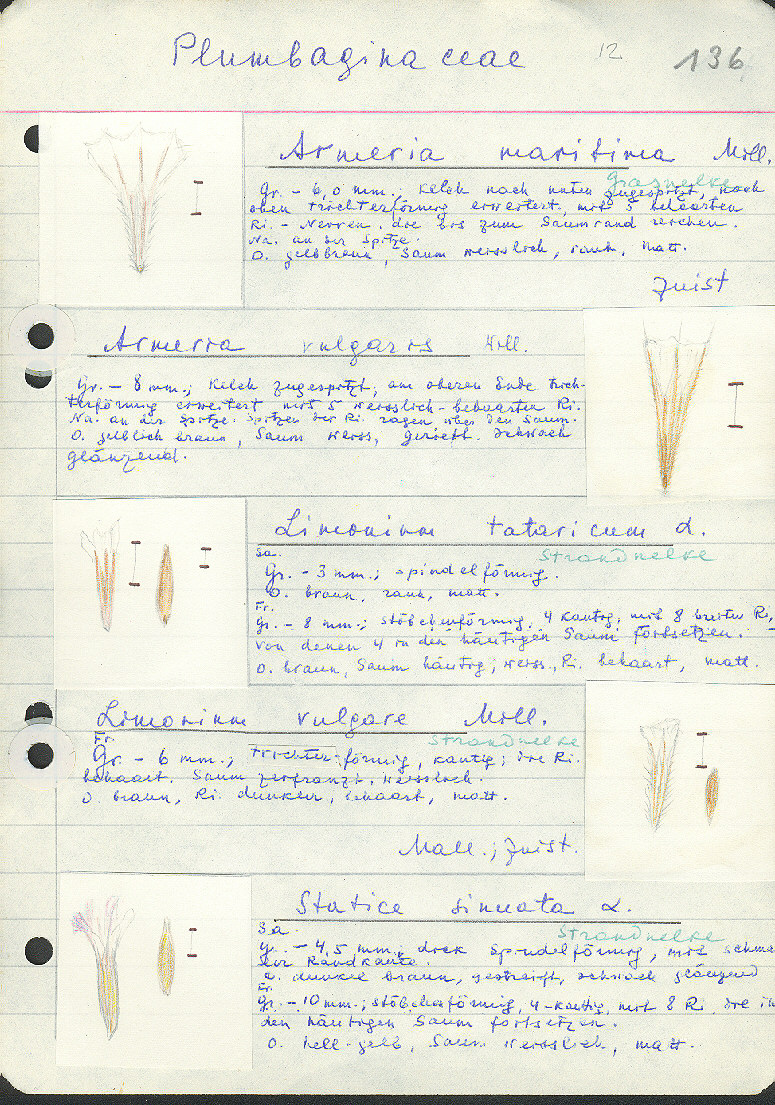 Plumbaginaceae 12 136
Armeria maritima Mill.
Grasnelke
Gr. - 6,0 mm.; Kelch nach unten zugespitzt nach
oben trichterförmig erweitert, mit 5 behaarten
Ri. - Nerven, die bis zum Saumrand reichen.
Na. an der Spitze.
O. gelbbraun, Saum weisslich, rauh, matt.
Juist
Armeria vulgaris Will.
Gr. - 8 mm.; Kelch zugespitzt, am oberen Ende trich-
terförmig erweitert mit 5 weisslich-behaarten Ri.
Na. an der Spitze. Spitzen der Ri. ragen über den Saum.
O. gelblich braun, Saum weiss, gerieft. Schwach
glänzend.
Limonium tataricum L.
Strandnelke
Sa.
Gr. - 3 mm.; spindelförmig.
O. braun, rauh, matt.
Fr.
Gr. - 8 mm.; stäbchenförmig, 4 kantig, mit 8 breiten Ri.,
von denen 4 in den häutigen Saum fortsetzen.
O. braun, Saum häutig; weiss, Ri. behaart, matt.
Limonium vulgare Mill.
Strandnelke
Fr.
Gr. - 6 mm.; trichter-förmig, kantig; die Ri.
behaart. Saum zerfranzt, weisslich.
O. braun, Ri. dunkler, behaart, matt.
Mall.; Juist.
Statice sinuata L.
Strandnelke
Sa.
Gr. - 4,5 mm., dick spindelförmig, mit schma
ler Randkante.
O. dunkel braun, gestreift, schwach glänzend
Fr.
Gr. - 10 mm.; stäbchenförmig, 4-kantig, mit 8 Ri, die in
den häutigen Saum fortsetzen.
O. hell-gelb, Saum weisslich, matt.